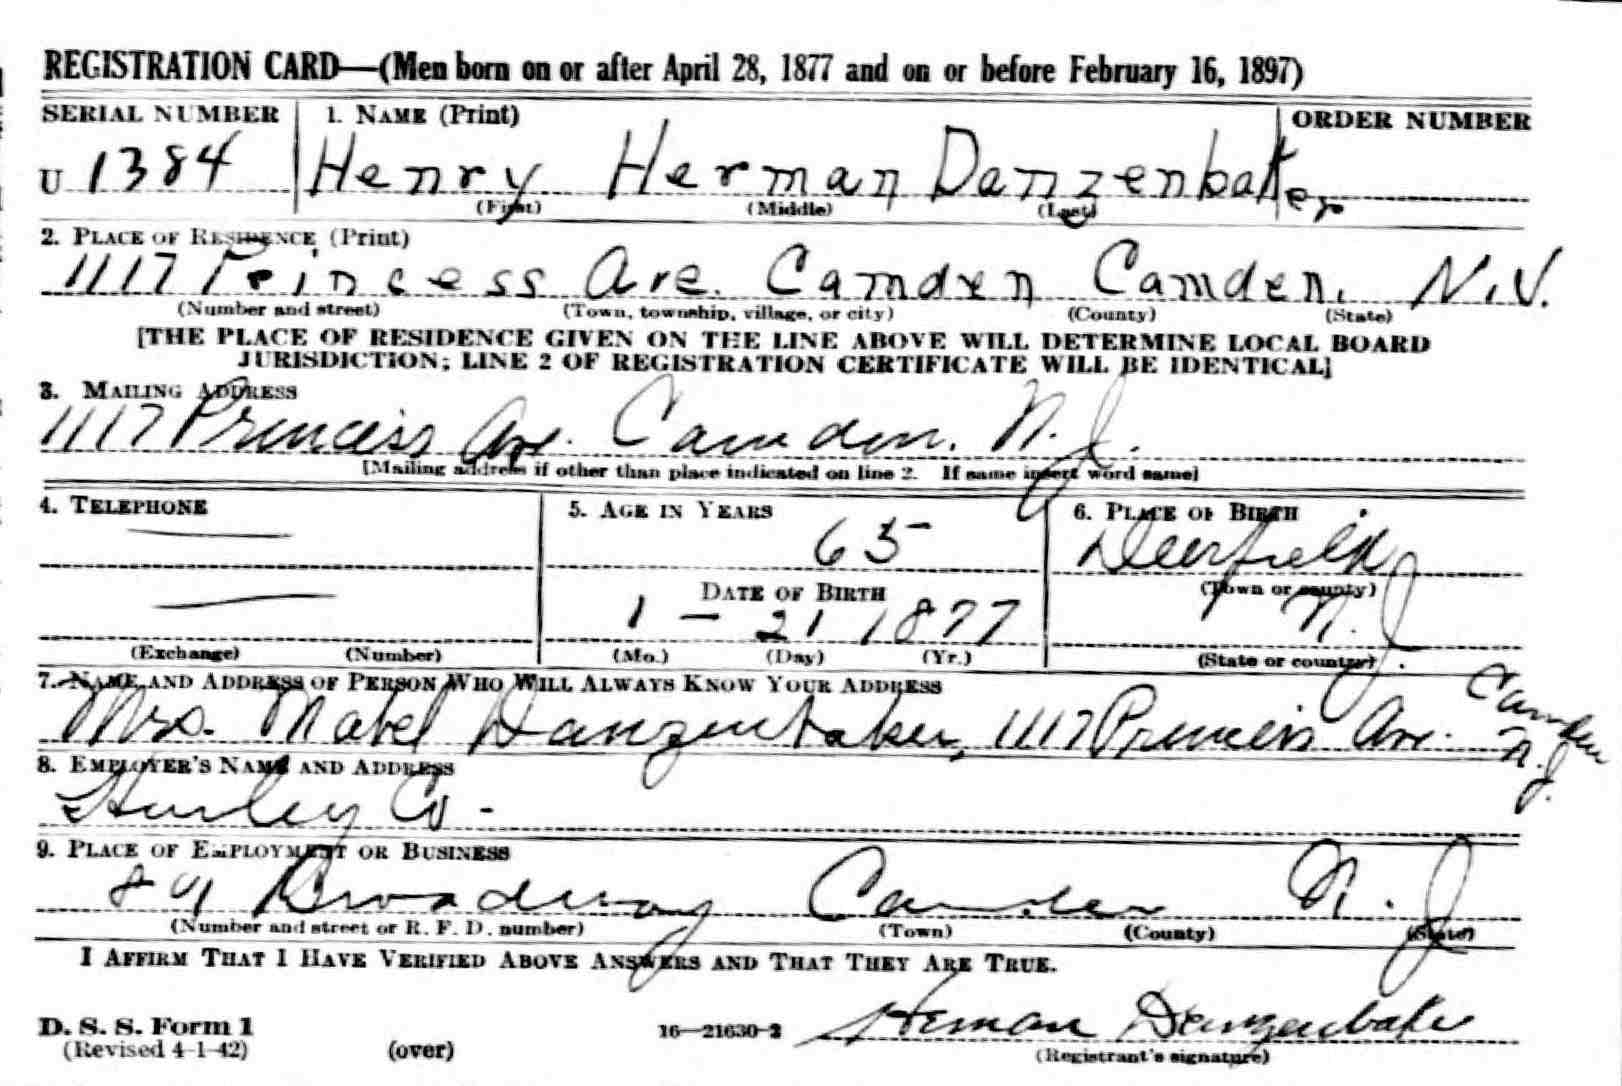 REGISTRATION CARD—(Men born on or after April 28, 1877 and on or before February 16, 1897)
SERIAL NUMBER 1. NAME (Print) ORDER NUMBER
U 1384 Henry Herman Danzenbaker
(First) (Middle) (Last)
2. PLACE OF RESIDENCE (Print)
1117 Princess Ave. Camden Camden. N.J.
(Number and street) (Town, township, village, or city) (County) (State)
[THE PLACE OF RESIDENCE GIVEN ON THE LINE ABOVE WILL DETERMINE LOCAL BOARD
JURISDICTION; LINE 2 OF REGISTRATION CERTIFICATE WILL BE IDENTICAL]
3. MAILING ADDRESS
1117 Princess Ave. Camden. N.J.
[Mailing address if other than place indicated on line 2. If same insert word same]
4. TELEPHONE 5. AGE IN YEARS 6. PLACE OF BIRTH
65 Deerfield
DATE OF BIRTH (Town or county)
1 - 21 1877 N.J.
(Exchange) (Number) (Mo.) (Day) (Yr.) (State or country)
7. NAME AND ADDRESS OF PERSON WHO WILL ALWAYS KNOW YOUR ADDRESS
Mrs. Mabel Danzenbaker, 1117 Princess Ave. Camden N.J.
8. EMPLOYER'S NAME AND ADDRESS
Hurley Co -
9. PLACE OF EMPLOYMENT OR BUSINESS
Broadway Camden N.J.
(Number and street or R. F. D. number) (Town) (County) (State)
I AFFIRM THAT I HAVE VERIFIED ABOVE ANSWERS AND THAT THEY ARE TRUE.
D. S. S. Form 1 16—21630-2 Herman Danzenbaker
(Revised 4-1-42) (over) (Registrant's signature)